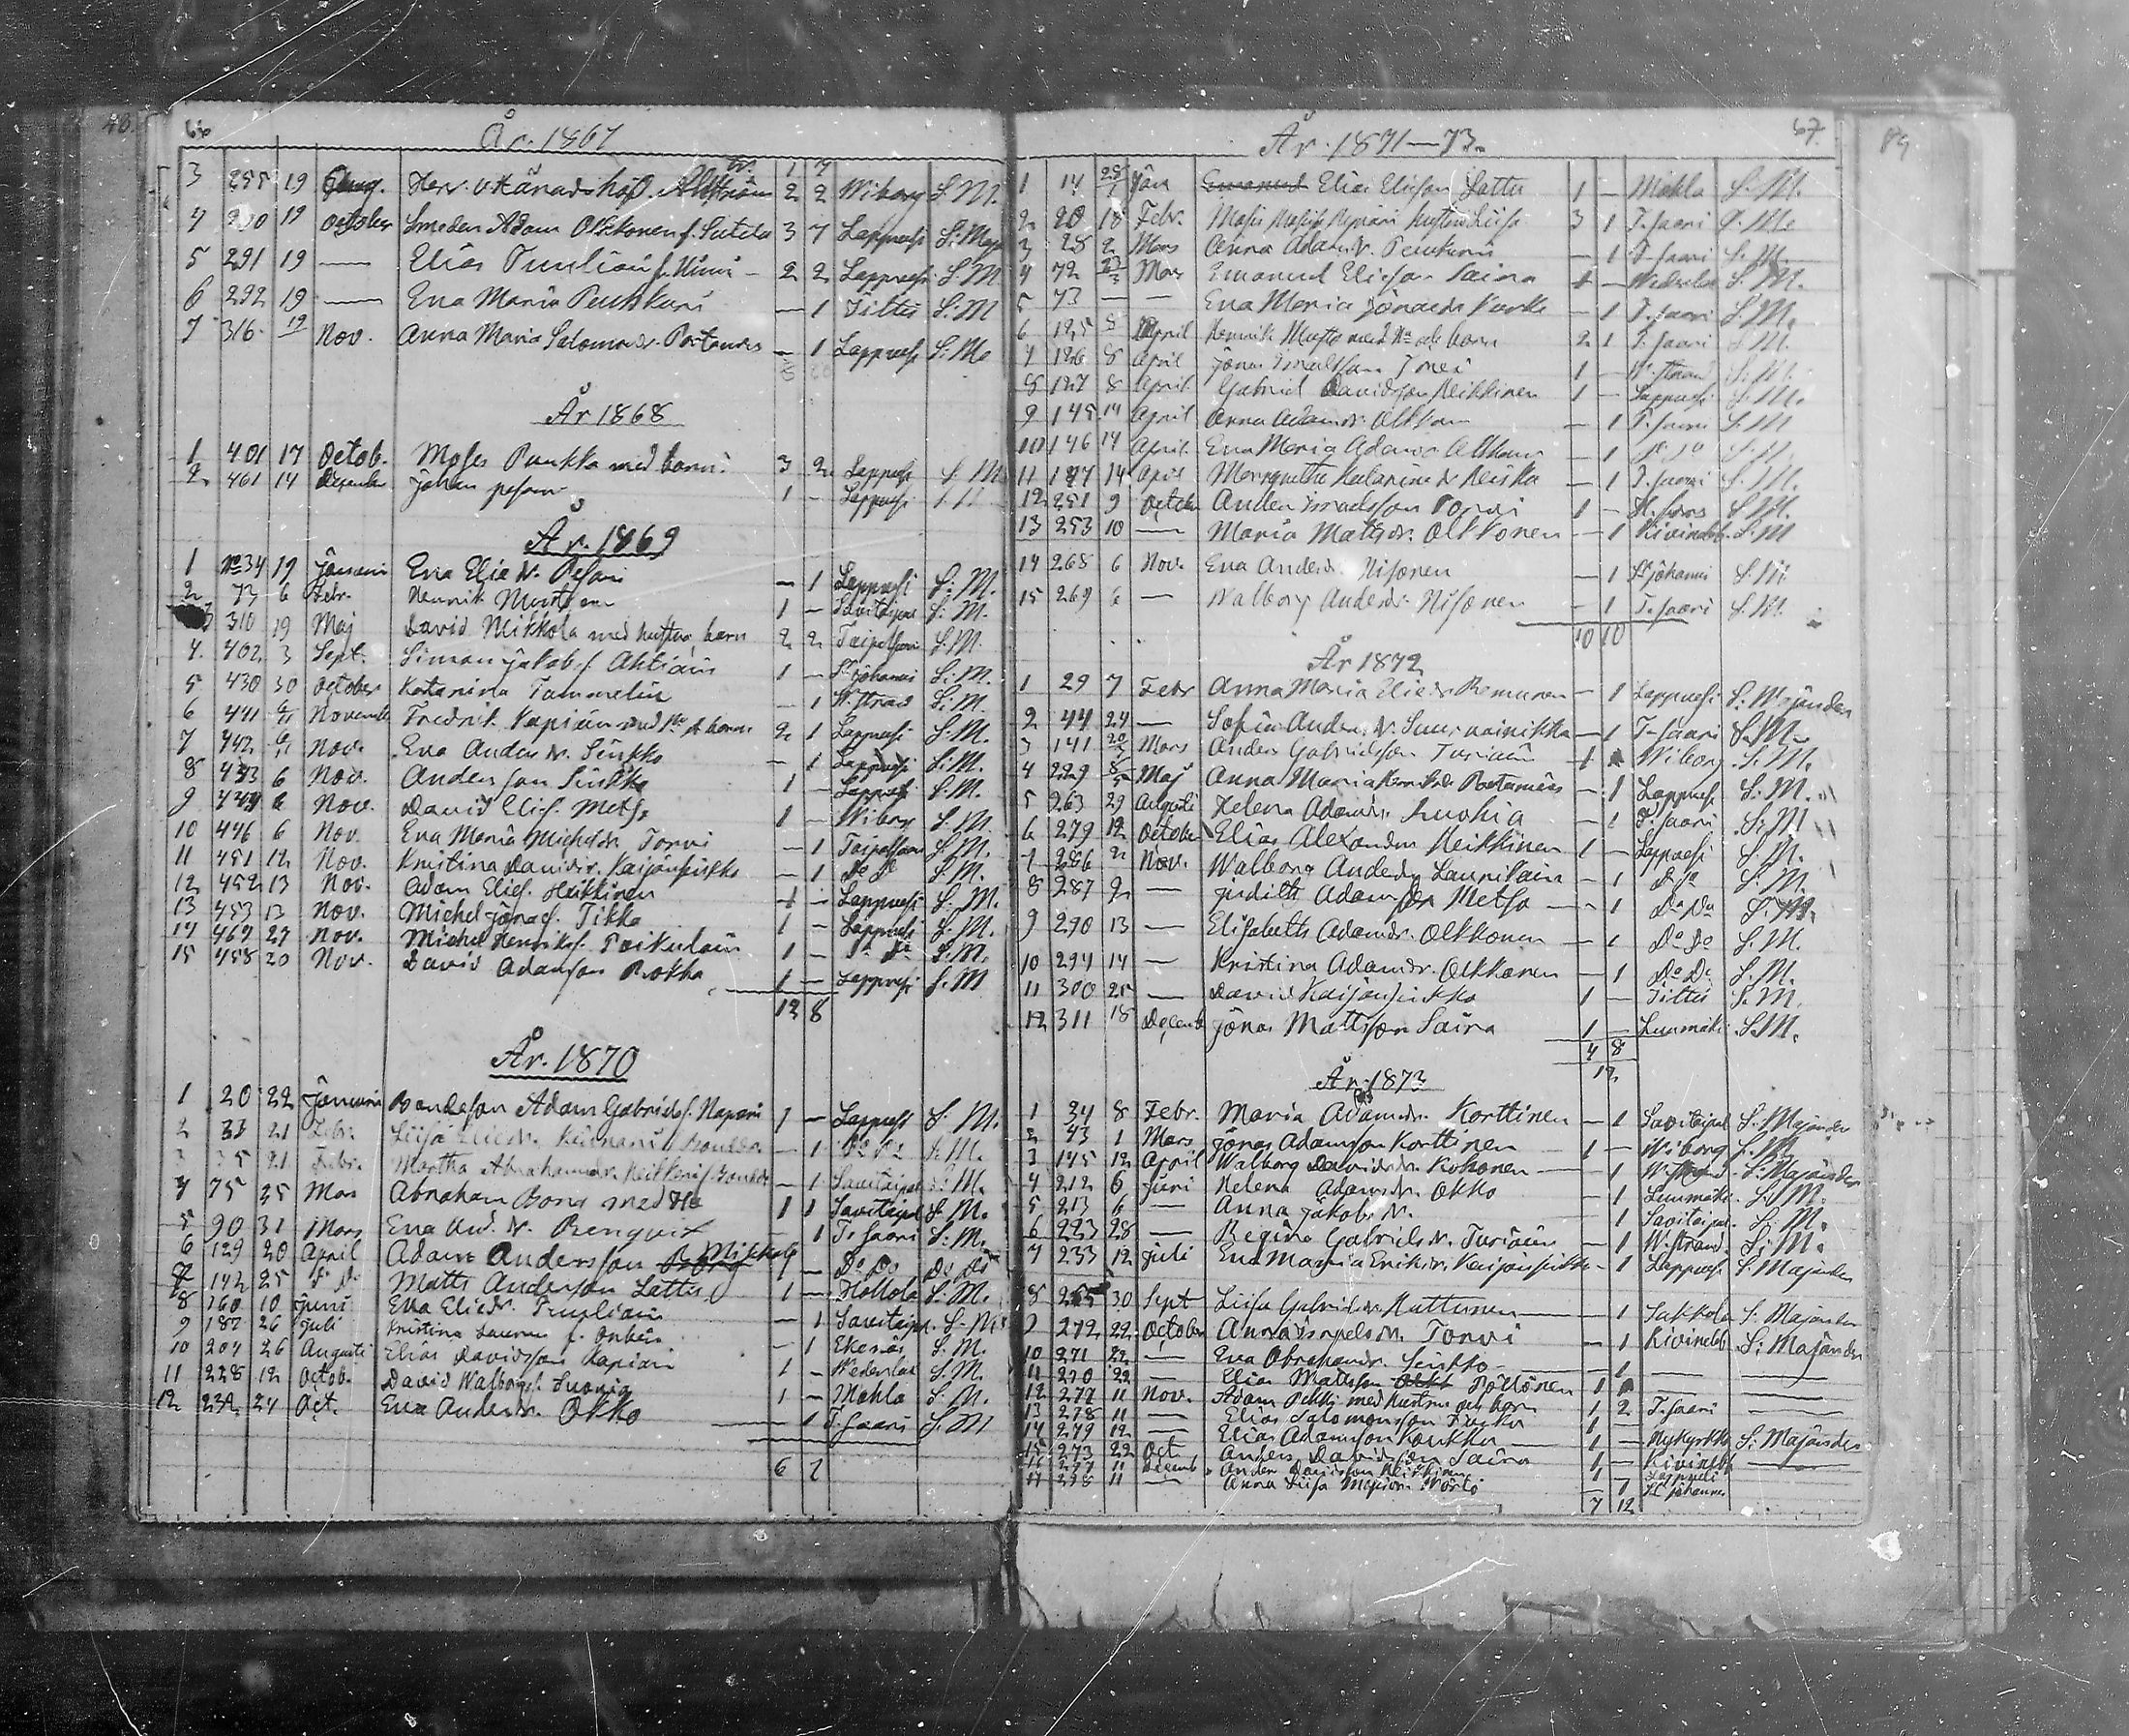 66
År. 1867
1 4
3 255 19 Aug. Herr v Häradshöfd. Ahlström 2 2 Wiborg S. M.
4 290 19 October Smeden Adam Olkkonen f. Sutela 3 7 Lappvesi S: Maj
5 291 19 — Elias Tuuliain f. Himi — 2 2 Lappvesi S. M
6 292 19 — Eva Maria Punkkuri — 1 Tiltis S: M
7 316 19 Nov. Anna Maria Salomonsdr. — 1 Lappvesi S: M.
År 1868
1 401 17 Octob. Moses Punkka med barn 3 2 Lappvesi S. M
2 461 14 December Johan 1 — Lappvesi
År. 1869
1 No 34 19 Januari Eva Elie dr. Pesari — 1 Lappvesi S: M.
2 73 6 Febr. Henrik 1 — Savitaipal S: M.
3 310 19 Maj David Mikkola med hustru, barn 2 2 Taipalsaari S. M.
4. 402 3 Sept. Simon Jakobs. Ahtiain 1 — St Johannis S: M.
5 430 30 October Katarina Tammelin — 1 W. strand S: M.
6 441 6/11 November Fredrik Kapiain med Hu & barn 2 1 Lappvesi S: M.
7 442 6/11 Nov. Eva Anders dr. Sinkko — 1 Lappvesi S: M.
8 443 6 Nov. Anders son Sinkko 1 — Lappvesi S. M.
9 444 6 Nov. David Elies. Metso 1 — Wiborg S. M.
10 446 6 Nov. Eva Maria Michelsdr. Torvi — 1 Taipalsaari S. M.
11 451 12 Nov. Kristina Davidsdr. Kaijansinkko — 1 Do Do S. M.
12 452 13 Nov. Adam Elies. Heikkinen 1 — Lappvesi S: M.
13 453 13 Nov. Michel Jonas s. Tikka 1 — Lappvesi S: M.
14 467 27 Nov. Michel Henriks s. Paikulain 1 — Do Do S: M.
15 458 20 Nov. David Adamson Rokka 1 — Lappvesi S. M
12 8
År. 1870
1 20 22 Januari Bondeson Adam Gabriels s. Napari 1 — Lappvesi S: M.
2 33 21 Febr. Liisa Eliedr. — 1 Do Do S. M.
3 35 21 Febr. Martha Abrahamsdr. — 1 Savitaipal S: M.
4 75 25 Mars Abraham Borg med Hu 1 1 Savitaipal S. M.
5 90 31 Mars Eva And. dr. Bengvist 1 T. Saari S: M.
6 129 20 April Adam Andersson Borg Mikkola 1 — Do Do Do Do
7 142 25 Do Do Matts Anderson Lattu 1 — Hollola S: M.
8 160 10 Juni Eva Eliedr. Tuuliain — 1 Savitaipal S. M.
9 182 26 Juli Kristina — 1 Ekenäs S. M.
10 204 26 Augusti Elias Davidsson Kapiain 1 — Wederlax S. M.
11 228 12 Octob. David Walborgs s. 1 — Mohla S. M.
12 232 24 Oct. Eva Andersdr. Okko — 1 T. Saari S. M
6 7
67.
År. 1871—73.
1 14 25/1 Jan Emanuel Elias Eliesson Lattu 1 — Mohla S. M.
2 20 18 Febr. 3 1 T. Saari S. M.
3 28 2 Mars Anna Adamsdr. Punkkuri — 1 T. Saari S. M.
4 72 Mars Emanuel Elieson Saira 1 — Wederlax S. M.
5 73 — — Eva Maria Jonasdr Kurke — 1 T. Saari S. M.
6 125 5 April Henrik med Hu och barn 2 1 T. Saari S. M.
7 126 8 April Jonas 1 — W. strand S. M.
8 127 8 April Gabriel Davidsson Heikkinen 1 — Lappvesi S. M.
9 145 14 April Anna Adamsdr. Olkkon — 1 T. Saari S. M
10 146 14 April Eva Maria Adamsdr Olkkon — 1 Do Do S. M.
11 147 14 April Margretha Katarina dr — 1 T. Saari S. M.
12 251 9 October Anders Israelsson Torvi 1 — S. M.
13 253 10 — Maria Mattsdr. Olkkonen — 1 Kivinebb. S: M
14 268 6 Nov. Eva Andersdr. Nisonen — 1 St Johannis S. M.
15 269 6 — Walborg Andersdr. Nisonen — 1 T. Saari S. M.
10 10
År 1872
1 29 7 Febr Anna Maria Eliedr Remunen — 1 Lappvesi S: Majander
2 44 24 — Sofia Anders dr. Suurnainikka — 1 T. Saari S. M.
3 141 Mars Anders Gabrielsson Turiain 1 Wiborg S. M.
4 229 Maj Anna Maria — 1 Lappvesi S. M.
5 263 29 Augusti Helena Adamsdr. — 1 T. Saari S: M
6 279 12 October Elias Alexander Heikkinen 1 — Lappvesi S: M.
7 286 2 Nov. Walborg Andersdr Laurikain — 1 Do Do S: M.
8 287 2 — Judith Adamsdr Metso — 1 Do Do S: M.
9 290 13 — Elisabeth Adamsdr. Olkkonen — 1 Do Do S. M.
10 294 14 — Kristina Adamsdr. Olkkonen — 1 Do Do S. M.
11 300 25 — David Kaijansinkko 1 — Tiltis S. M.
12 311 18 Decemb Jonas Mattsson Saira 1 — Luumäki S. M.
4 8
12
År. 1873
1 34 8 Febr. Maria Adamsdr. Korttinen — 1 Savitaipal S. Majander
2 43 1 Mars Jonas Adamsson Korttinen 1 — Wiborg S. M
3 145 12 April Walborg Davidsdr. Kokonen — 1 W. strand S. Majander
4 212 6 Juni Helena Adamsdr. Okko — 1 Luumäki S. M.
5 213 6 — Anna Jakobs dr. 1 Savitaipal. S. M.
6 223 28 — Regina Gabriels dr. Turiain — 1 W. strand. S: M.
7 233 12 Juli Eva Maria Eriksdr. Kaijansinkko — 1 Lappvesi S. Majander
8 255 30 Sept Liisa Gabrielsdr. Huttunen — 1 Sakkola S: Majander
9 272 22 October Anna Israels dr. Torvi — 1 Kivinebb S: Majander
10 271 22 — Eva Abrahamsdr. Sinkko — 1 — —
11 270 22 — Elias Mattsson Okko Pöllönen 1 — —
12 277 11 Nov. Adam Pekki med hustru och barn 1 2 T. Saari —
13 278 11 — Elias Salomonsson 1 —
14 279 12 — Elias Adamsson Koukku 1 — Nykyrkko S: Majander
15 273 22 Oct Anders Davidsson Saira 1 — Kivinebb —
16 297 11 Decemb. Anders Davidsson Heikkinen 1 Lappvesi
17 298 11 — Anna Liisa — 1 St Johannes
7 12
89